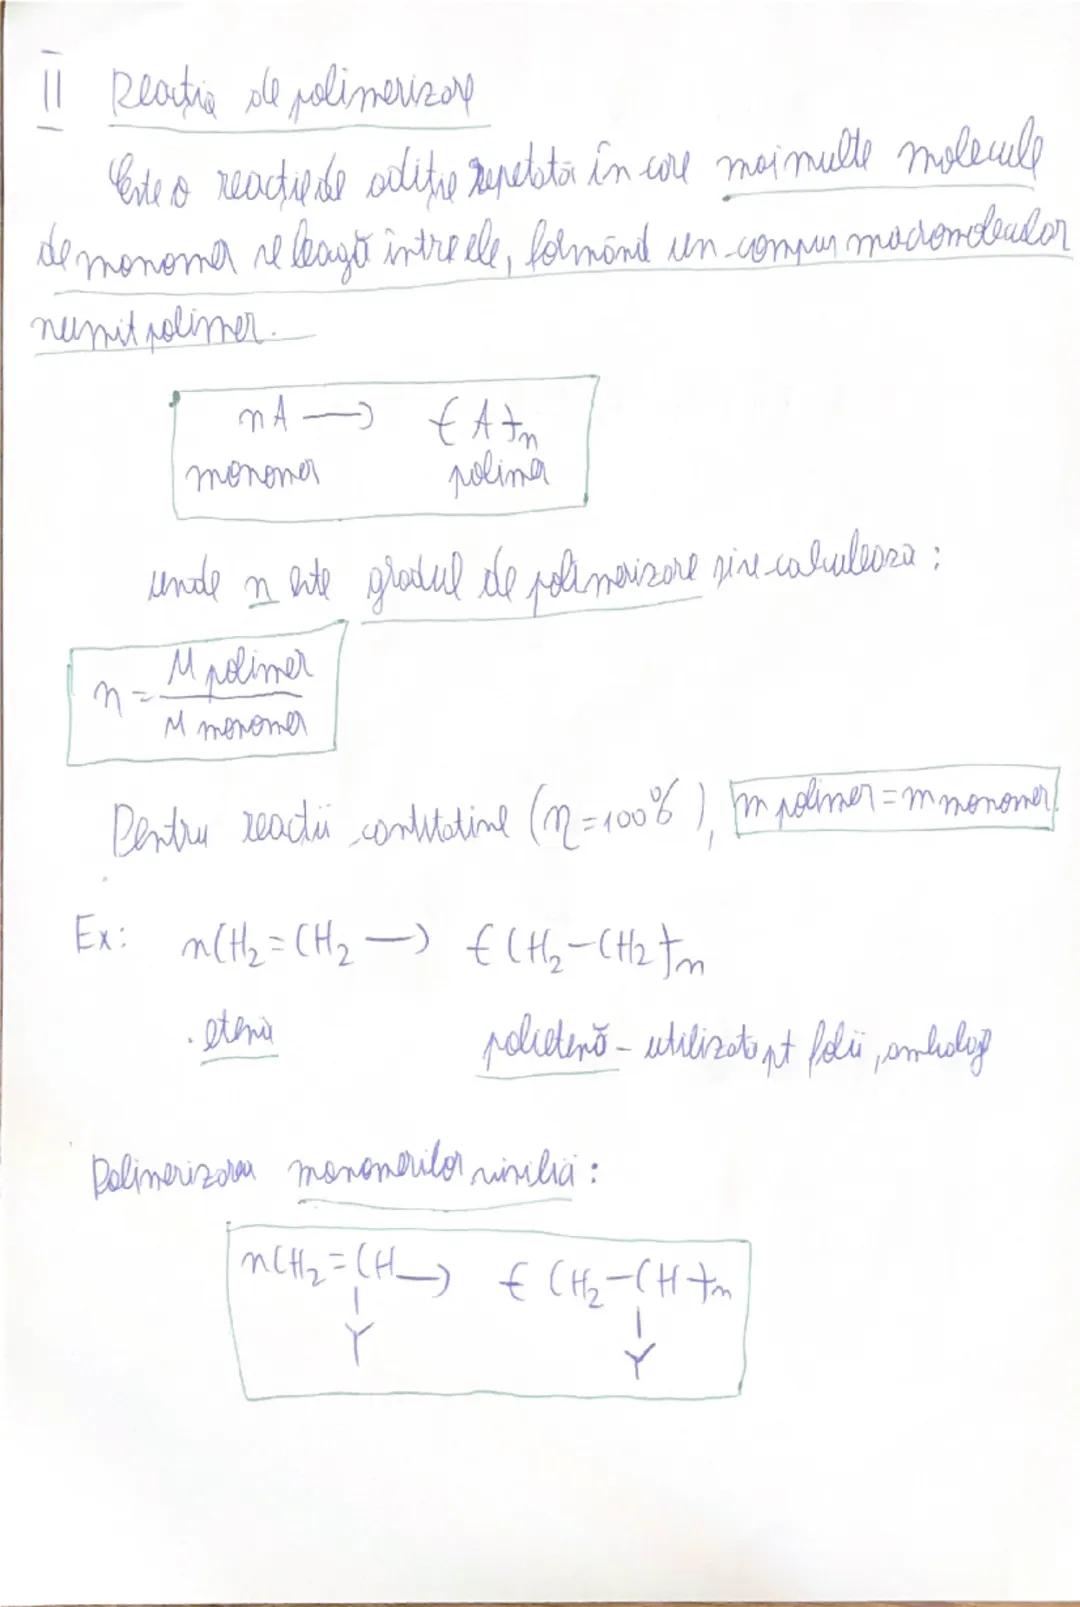 II Reacția de polimerizare
Este o reacție de adiție repetată în care mai multe molecule
de monomer se leagă între ele, formând un compus macromolecular
numit polimer.
nA → -(A)-n
monomer polimer
unde n este gradul de polimerizare și se calculează:
n = M polimer / M monomer
Pentru reacții cantitative (η=100%), m polimer = m monomer.
Ex: nCH₂=CH₂ → -(CH₂-CH₂)-n
etenă polietenă - utilizată pt folii, ambalaj
Polimerizarea monomerilor vinilici:
nCH₂=CH → -(CH₂-CH)-n
| |
Y Y